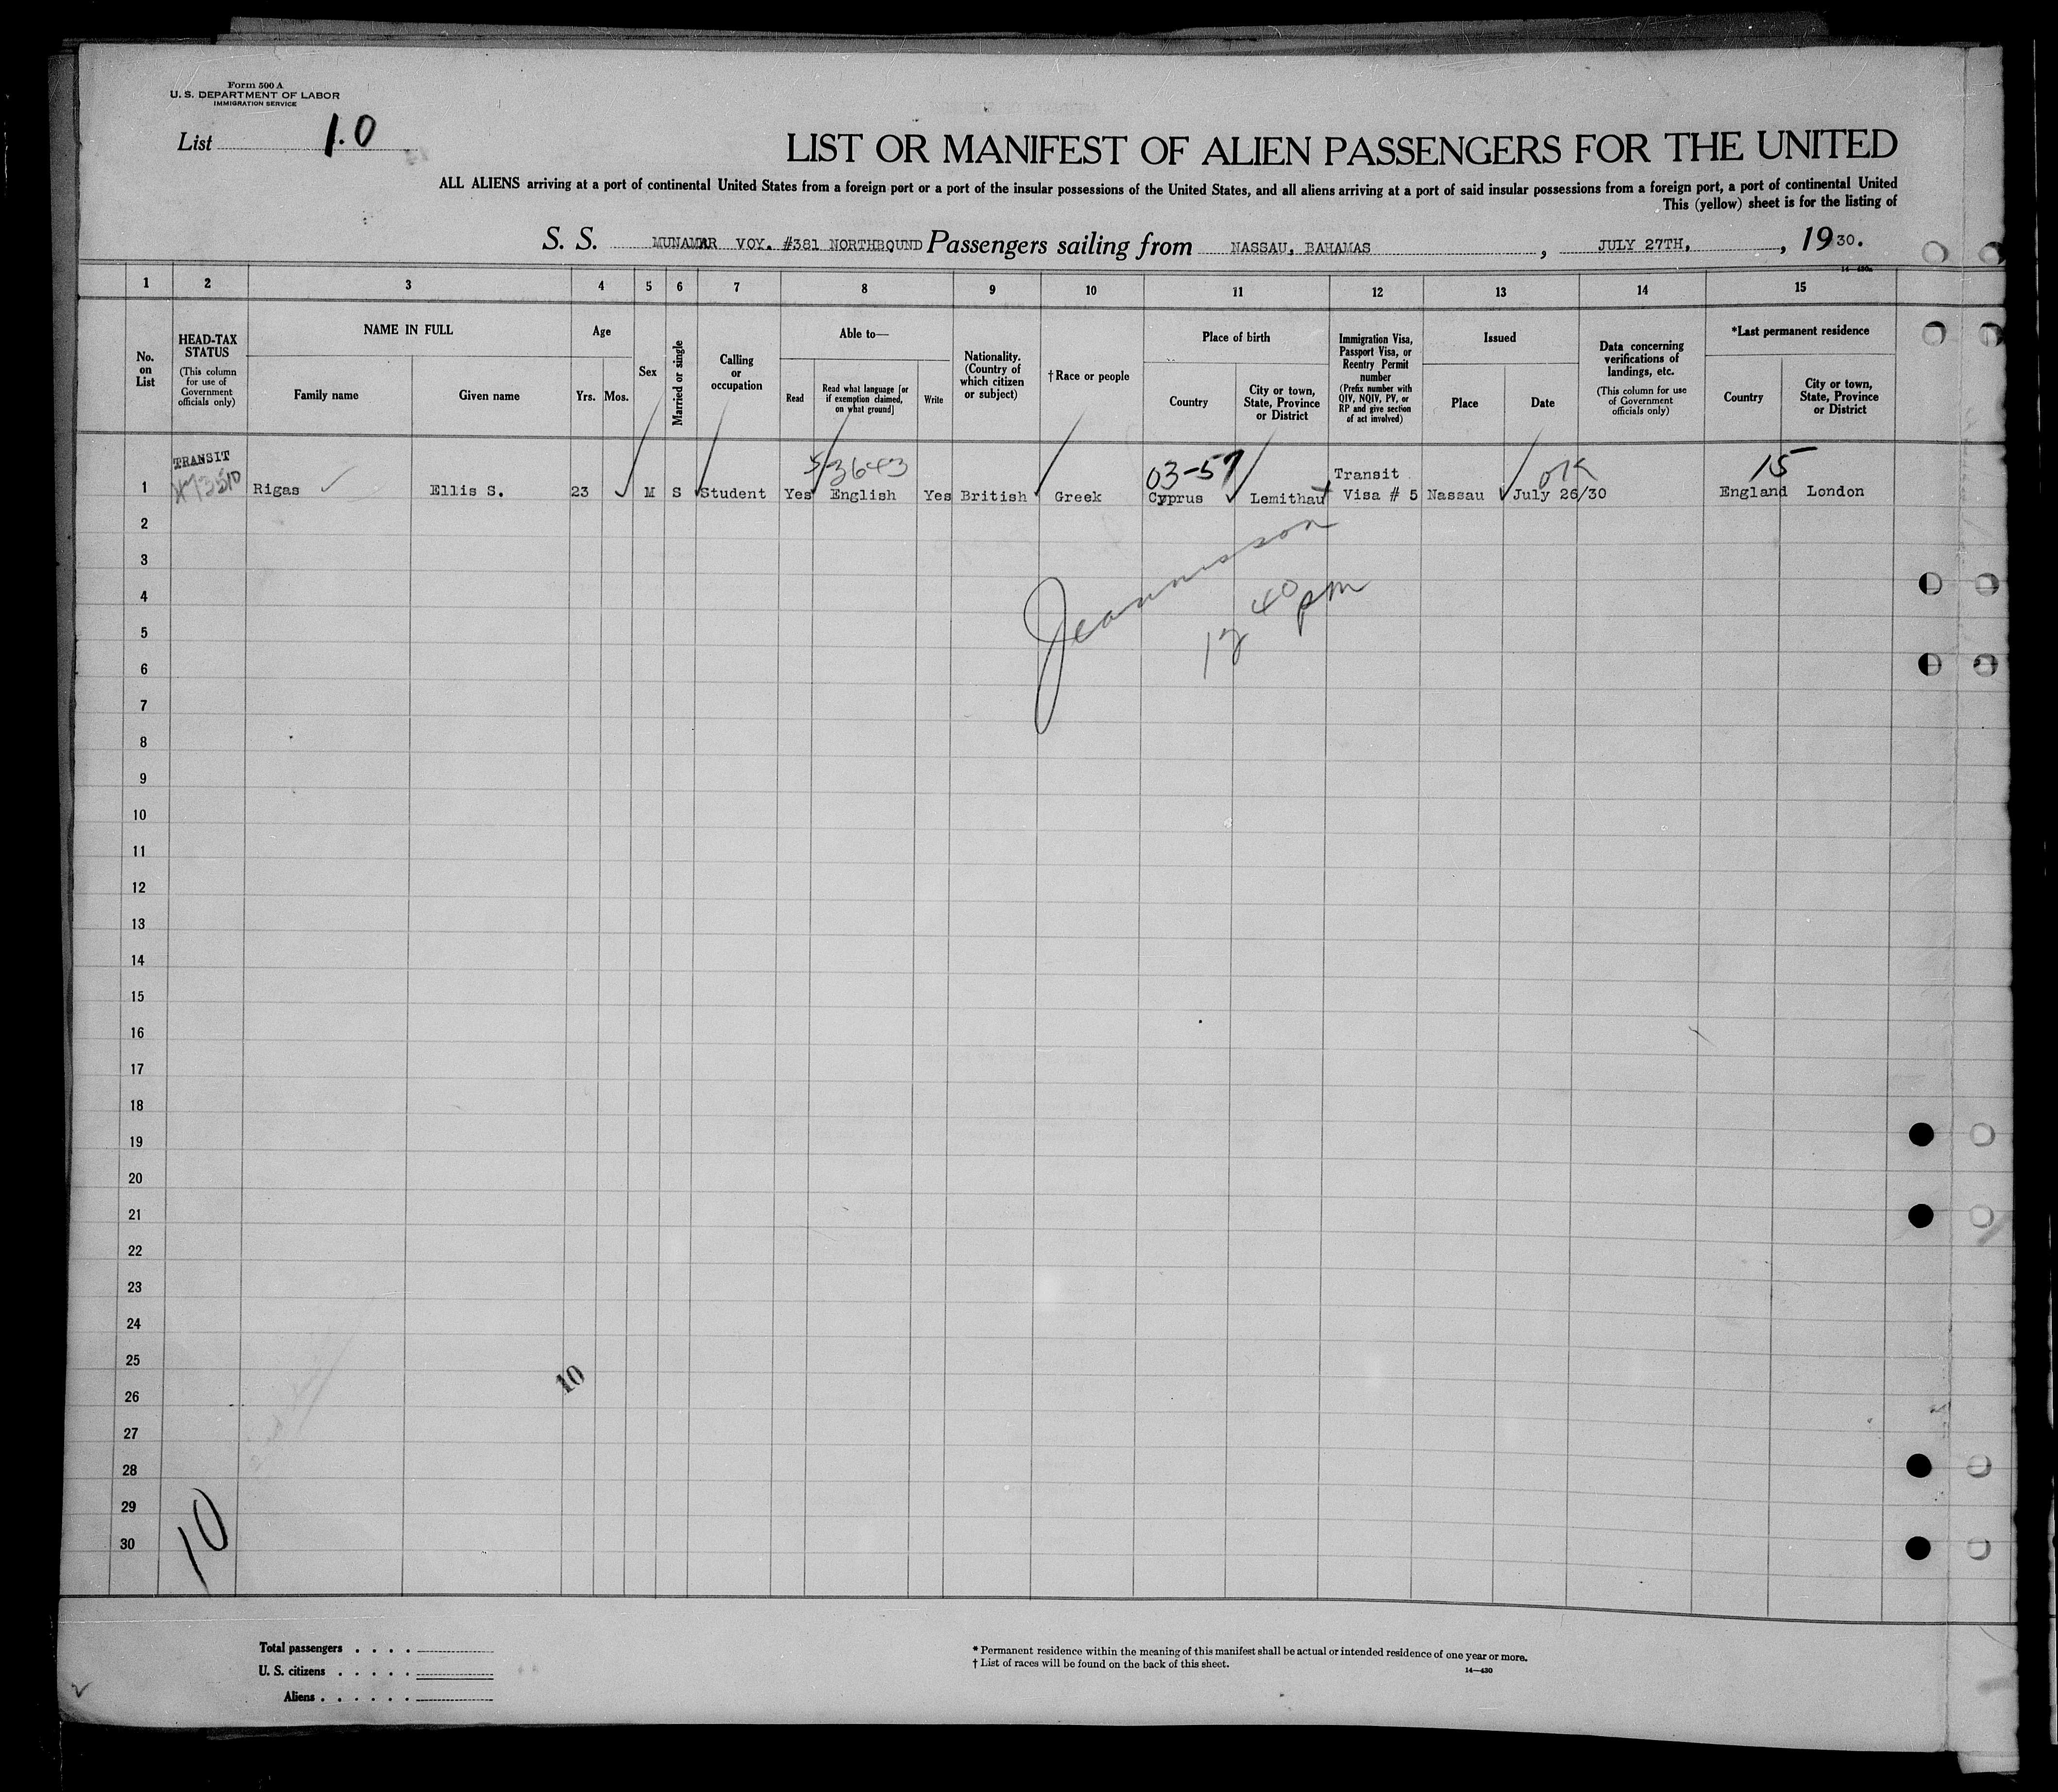 Form 500 A
U. S. DEPARTMENT OF LABOR
IMMIGRATION SERVICE
List 10
LIST OR MANIFEST OF ALIEN PASSENGERS FOR THE UNITED
ALL ALIENS arriving at a port of continental United States from a foreign port or a port of the insular possessions of the United States, and all aliens arriving at a port of said insular possessions from a foreign port, a port of continental United
This (yellow) sheet is for the listing of
S. S. MUNAMAR VOY. #381 NORTHBOUND Passengers sailing from NASSAU, BAHAMAS, JULY 27TH, , 1930.
14—430a
1 2 3 4 5 6 7 8 9 10 11 12 13 14 15
No. on List
HEAD-TAX STATUS
(This column for use of Government officials only)
NAME IN FULL
Family name
Given name
Age
Yrs. Mos.
Sex
Married or single
Calling or occupation
Able to—
Read
Read what language [or if exemption claimed, on what ground]
Write
Nationality. (Country of which citizen or subject)
†Race or people
Place of birth
Country
City or town, State, Province or District
Immigration Visa, Passport Visa, or Reentry Permit number
(Prefix number with QIV, NQIV, PV, or RP and give section of act involved)
Issued
Place
Date
Data concerning verifications of landings, etc.
(This column for use of Government officials only)
*Last permanent residence
Country
City or town, State, Province or District
TRANSIT 53643 03-57 Transit 15
1 Rigas Ellis S. 23 M S Student Yes English Yes British Greek Cyprus Lemithau Visa # 5 Nassau July 26/30 England London
2
3
4
40 pm
5
12
6
7
8
9
10
11
12
13
14
15
16
17
18
19
20
21
22
23
24
25
10
26
27
28
29
30
10
Total passengers . . . .
U. S. citizens . . . . .
Aliens . . . . . .
* Permanent residence within the meaning of this manifest shall be actual or intended residence of one year or more.
† List of races will be found on the back of this sheet.
14—430